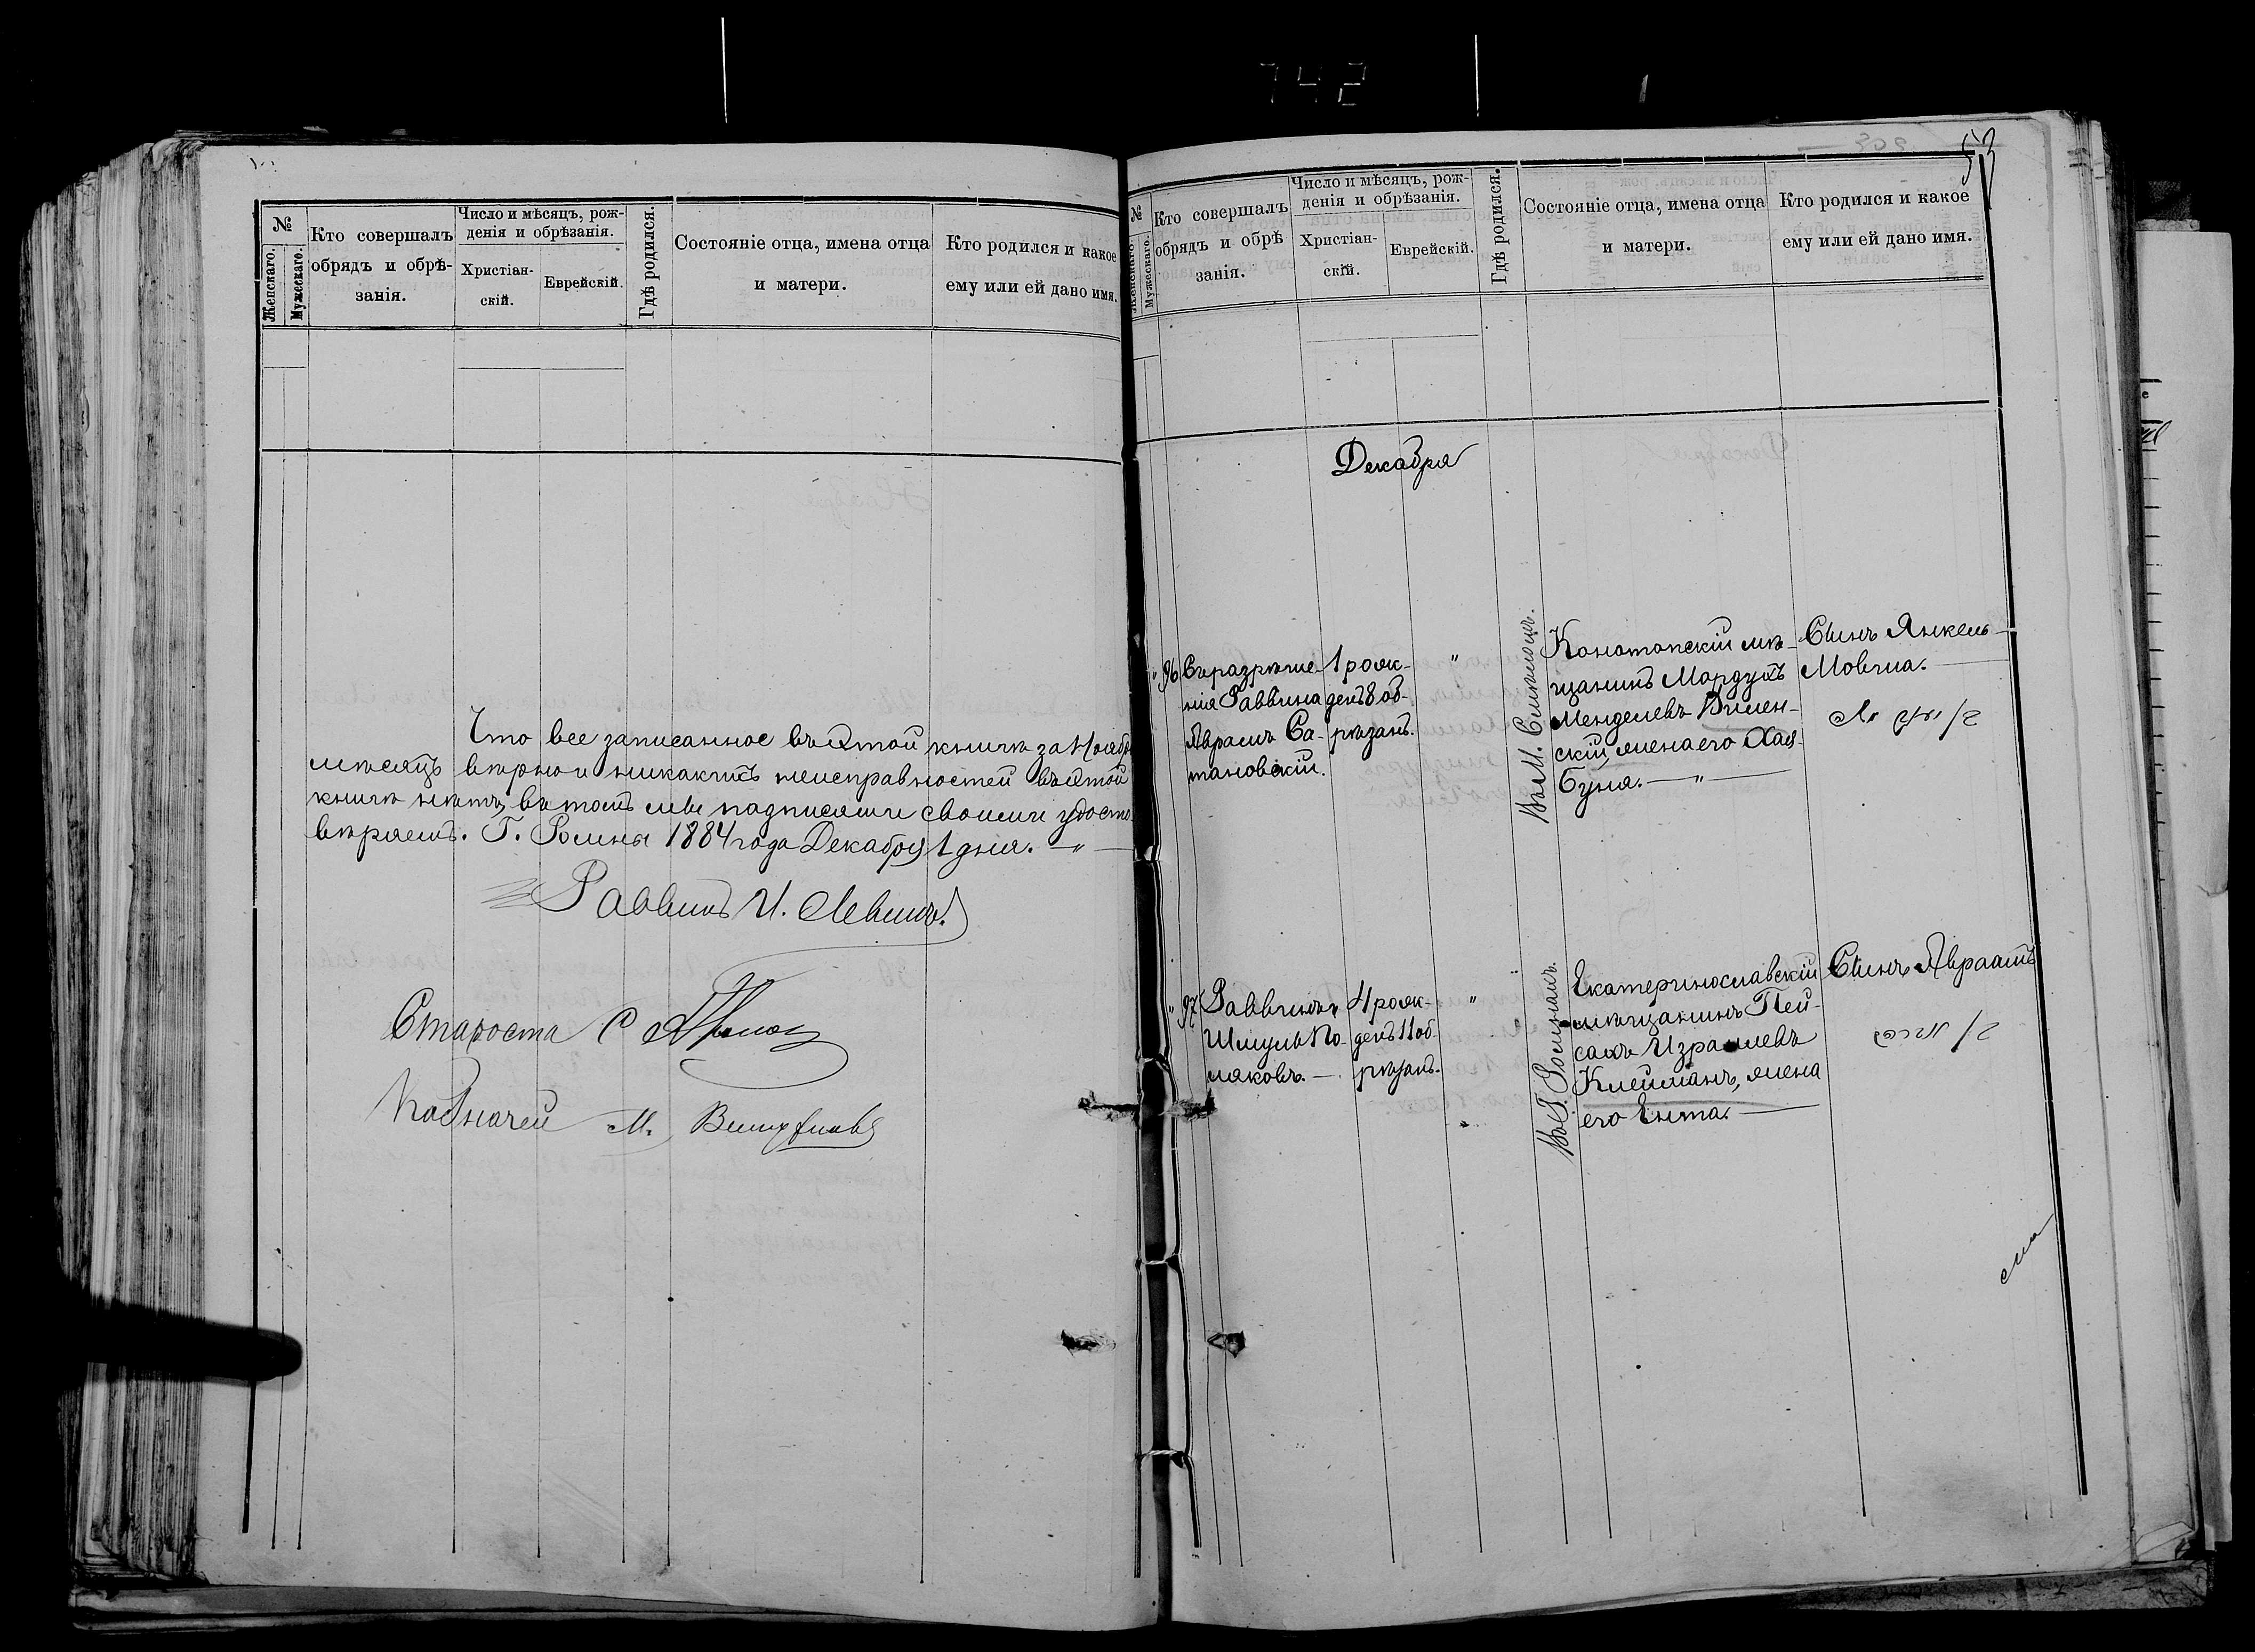 742
1
№
Женскаго.
Мужескаго.
Кто совершалъ
обрядъ и обрѣ-
занія.
Число и мѣсяцъ, рож-
денія и обрѣзанія.
Христіан-
скій.
Еврейскій.
Гдѣ родился.
Состояніе отца, имена отца
и матери.
Кто родился и какое
ему или ей дано имя.
Что все записанное въ этой книгѣ за Ноябрь
мѣсяцъ вѣрно и никакихъ неисправностей въ этой
книгѣ нѣтъ, въ томъ мы подписями своими удосто-
вѣряемъ. Г. Ромны 1884 года Декабря 1 дня.
Раввинъ И. Левинъ.
Староста С
Казначей М.
53
№
Женскаго.
Мужескаго.
Кто совершалъ
обрядъ и обрѣ
занія.
Число и мѣсяцъ, рож-
денія и обрѣзанія.
Христіан-
скій.
Еврейскій.
Гдѣ родился.
Состояніе отца, имена отца
и матери.
Кто родился и какое
ему или ей дано имя.
Декабря
" 96
Съ разрѣше-
нія Раввина
Аврамъ Са-
тановскій.
1 рож-
денъ 8 об-
рѣзанъ.
"
Въ М. Смѣломъ.
Конотопскій мѣ-
щанинъ Мордухъ
Менделевъ Вилен-
скій, жена его Хая
Буня. — " —
Сынъ Янкель
Мовша.
" 97
Раввинъ
Шмуль По-
ляковъ. —
4 рож-
денъ 11 об-
рѣзанъ.
"
Въ Г. Ромнахъ.
Екатеринославскій
мѣщанинъ Пей-
сахъ Израилевъ
Клейманъ, жена
его Ента. —
Сынъ Авраамъ